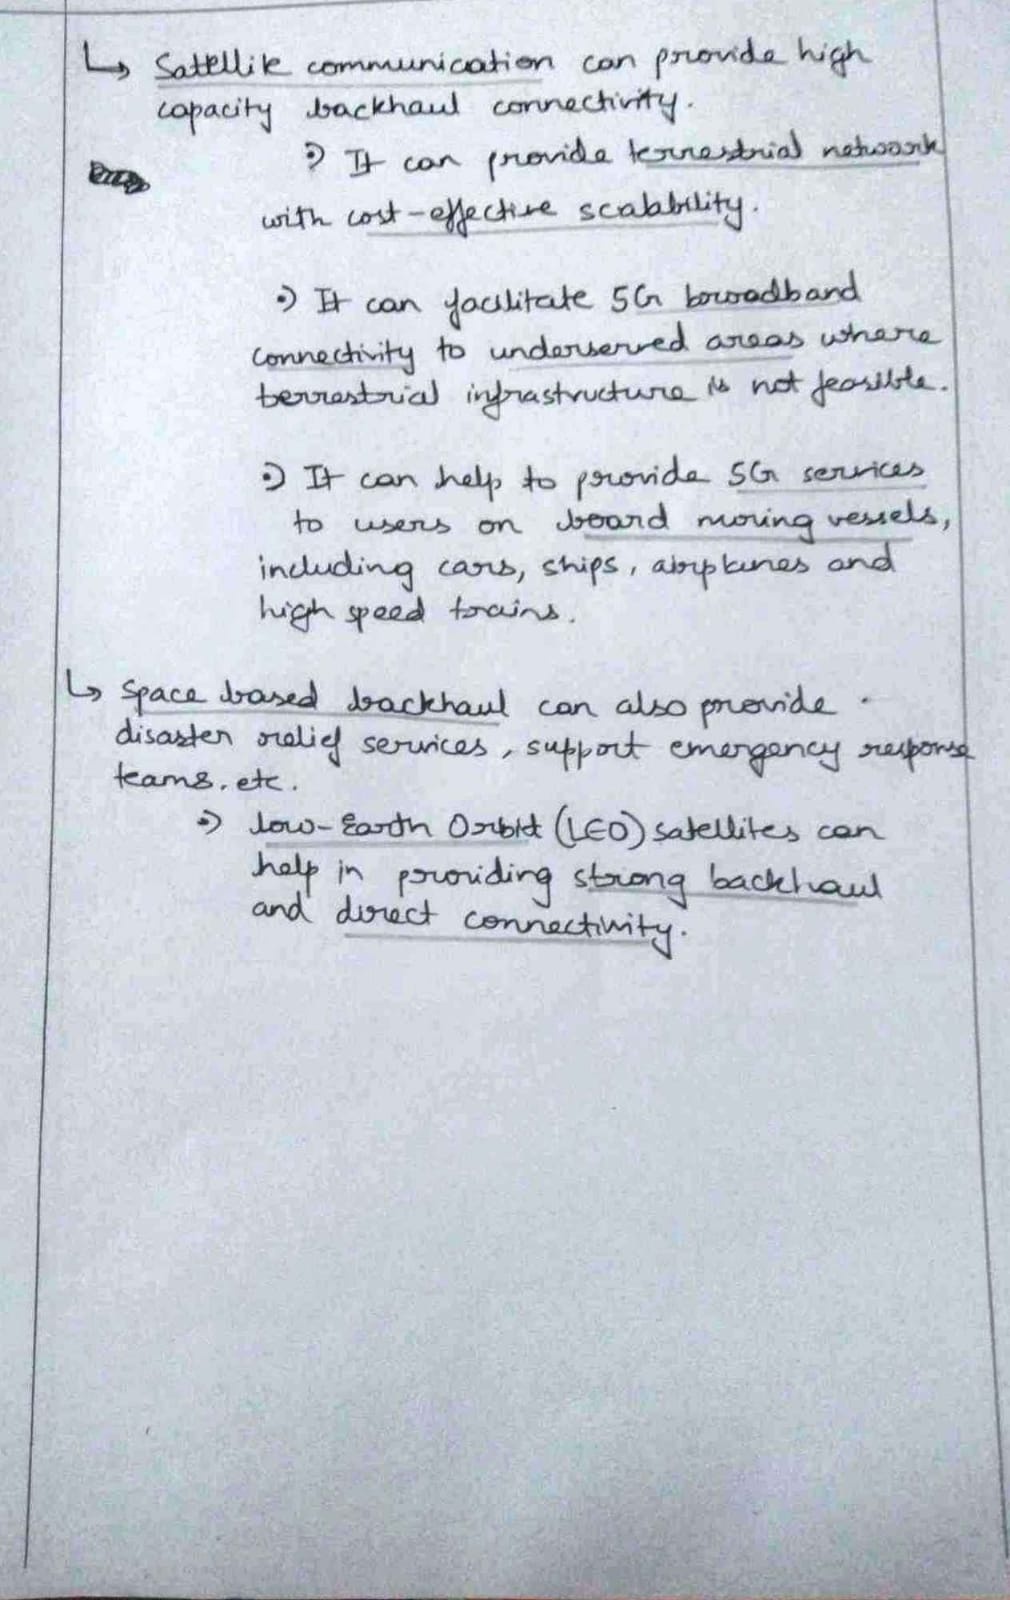 ↳ Satellite communication can provide high
capacity backhaul connectivity.
•) It can provide terrestrial network
with cost-effective scalability.
•) It can facilitate 5G broadband
connectivity to underserved areas where
terrestrial infrastructure is not feasible.
•) It can help to provide 5G services
to users on board moving vessels,
including cars, ships, airplanes and
high speed trains.
↳ Space based backhaul can also provide
disaster relief services, support emergency response
teams. etc.
•) Low-Earth Orbit (LEO) satellites can
help in providing strong backhaul
and direct connectivity.